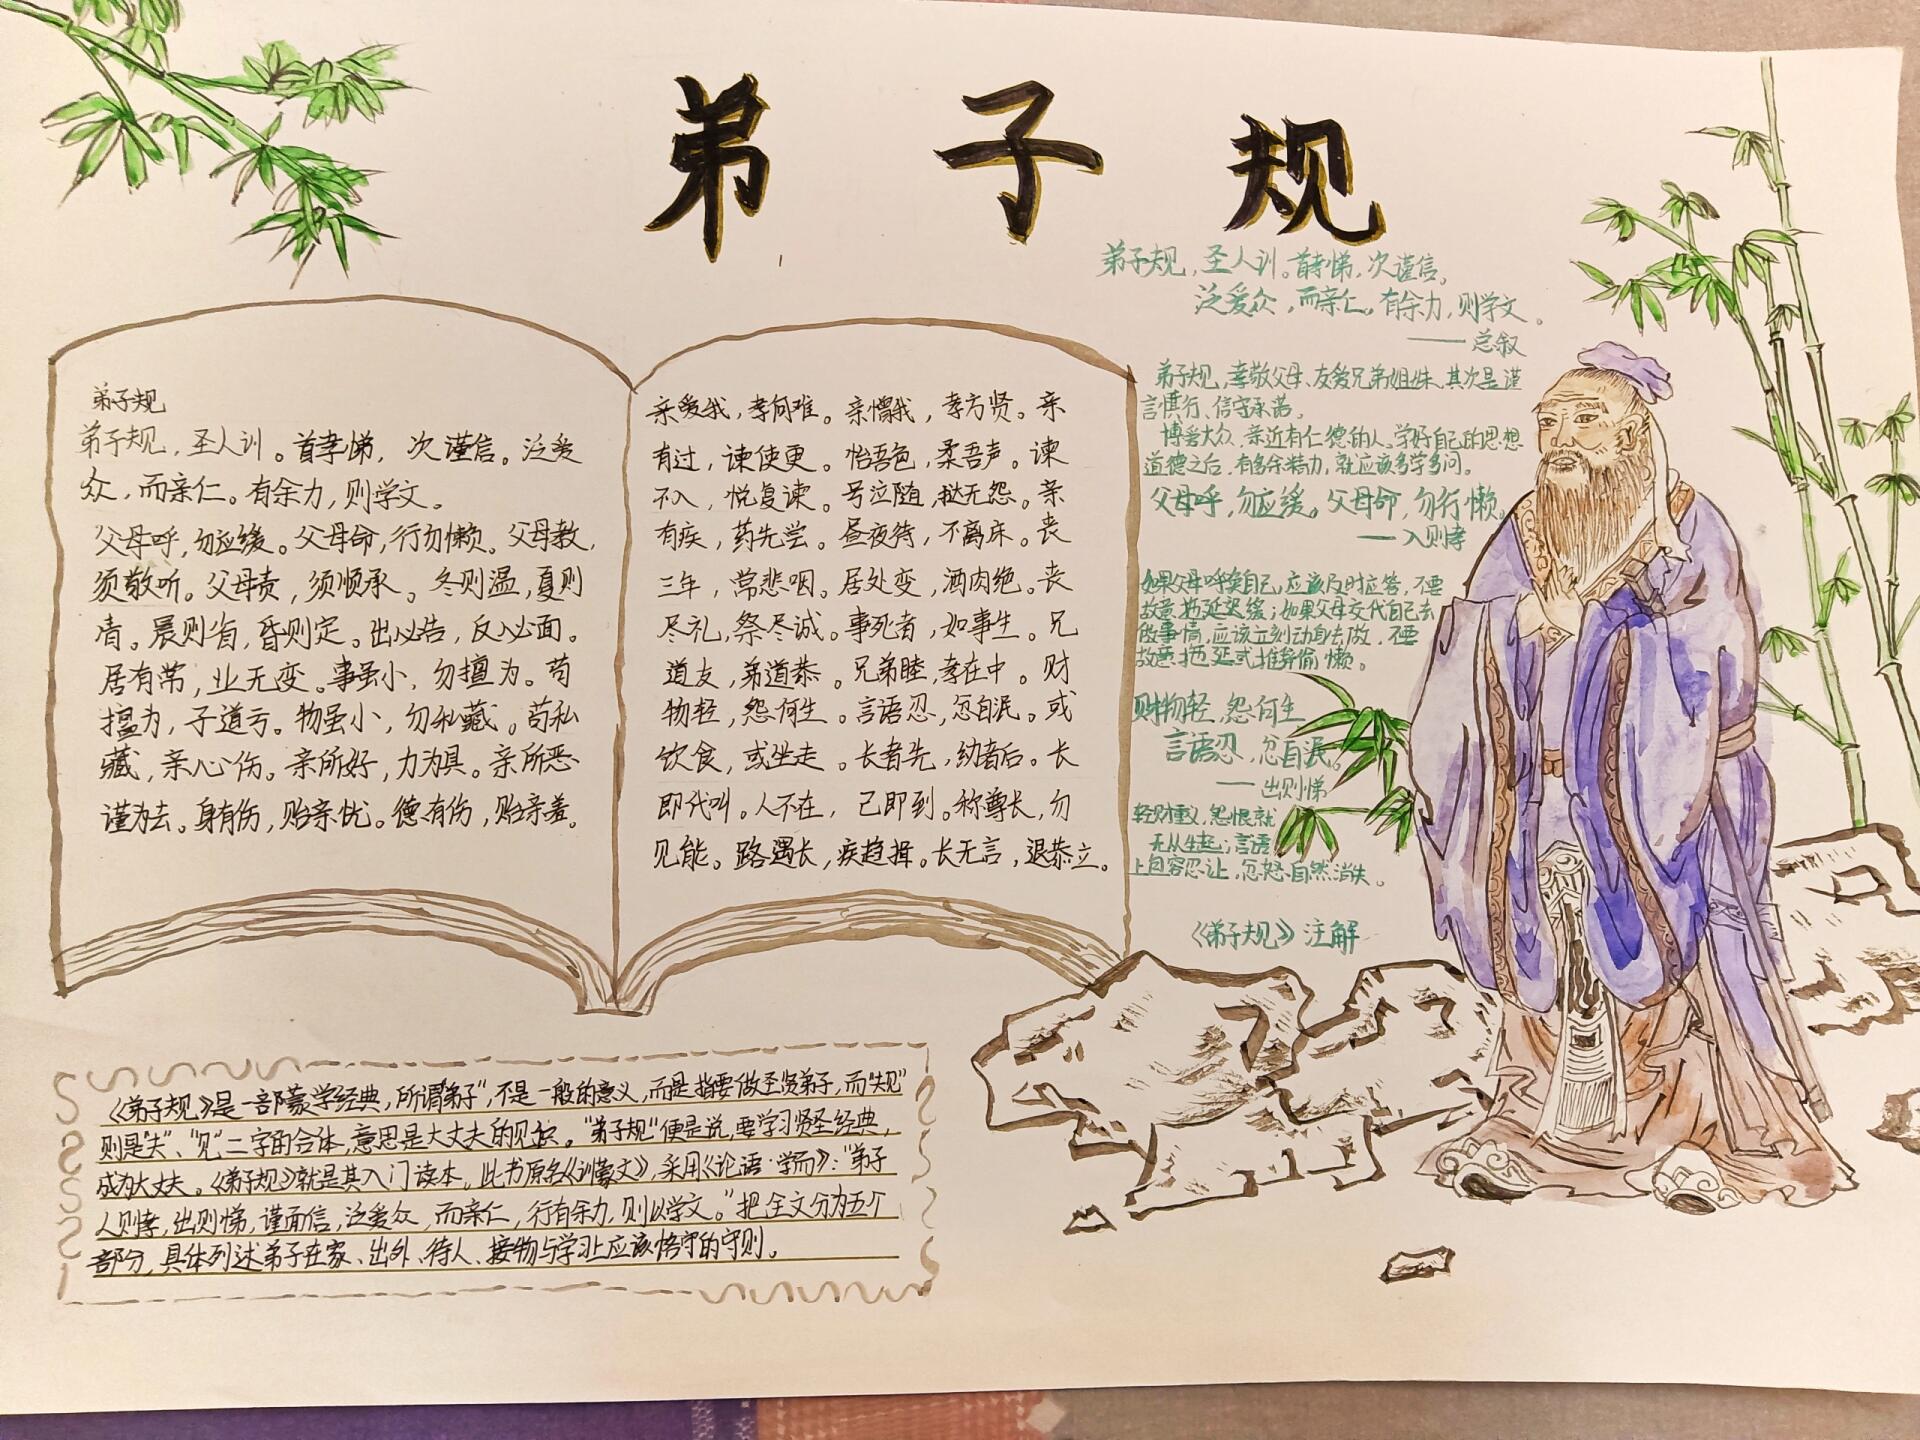 弟子规
弟子规
弟子规,圣人训。首孝悌,次谨信。泛爱
众,而亲仁。有余力,则学文。
父母呼,勿应缓。父母命,行勿懒。父母教,
须敬听。父母责,须顺承。冬则温,夏则
凊。晨则省,昏则定。出必告,反必面。
居有常,业无变。事虽小,勿擅为。苟
擅为,子道亏。物虽小,勿私藏。苟私
藏,亲心伤。亲所好,力为具。亲所恶
谨为去。身有伤,贻亲忧。德有伤,贻亲羞。
亲爱我,孝何难。亲憎我,孝方贤。亲
有过,谏使更。怡吾色,柔吾声。谏
不入,悦复谏。号泣随,挞无怨。亲
有疾,药先尝。昼夜待,不离床。丧
三年,常悲咽。居处变,酒肉绝。丧
尽礼,祭尽诚。事死者,如事生。兄
道友,弟道恭。兄弟睦,孝在中。财
物轻,怨何生。言语忍,忿自泯。或
饮食,或坐走。长者先,幼者后。长
即代叫。人不在,己即到。称尊长,勿
见能。路遇长,疾趋揖。长无言,退恭立。
弟子规,圣人训。首孝悌,次谨信。
泛爱众,而亲仁。有余力,则学文。
——总叙
弟子规,孝敬父母、友爱兄弟姐妹、其次是谨
言慎行、信守承诺。
博爱大众、亲近有仁德的人。学好自己的思想
道德之后,有多余精力,就应该多学多问。
父母呼,勿应缓。父母命,勿行懒。
——入则孝
如果父母呼唤自己,应该及时应答,不要
故意拖延迟缓;如果父母交代自己去
做事情,应该立刻动身去做,不要
故意拖延或推辞偷懒。
财物轻,怨何生
言语忍,忿自泯。
——出则悌
轻财重义,怨恨就
无从生起;言语
上包容忍让,忿怒自然消失。
《弟子规》注解
《弟子规》是一部蒙学经典,所谓"弟子",不是一般的意义,而是指要做圣贤弟子,而"规"
则是"夫"、"见"二字的合体,意思是大丈夫的见识。"弟子规"便是说,要学习贤圣经典,
成为大丈夫。《弟子规》就是其入门读本,此书原名《训蒙文》,采用《论语·学而》:"弟子
入则孝,出则悌,谨而信,泛爱众,而亲仁,行有余力,则以学文。"把全文分为五个
部分,具体列述弟子在家、出外、待人、接物与学习上应该恪守的守则。